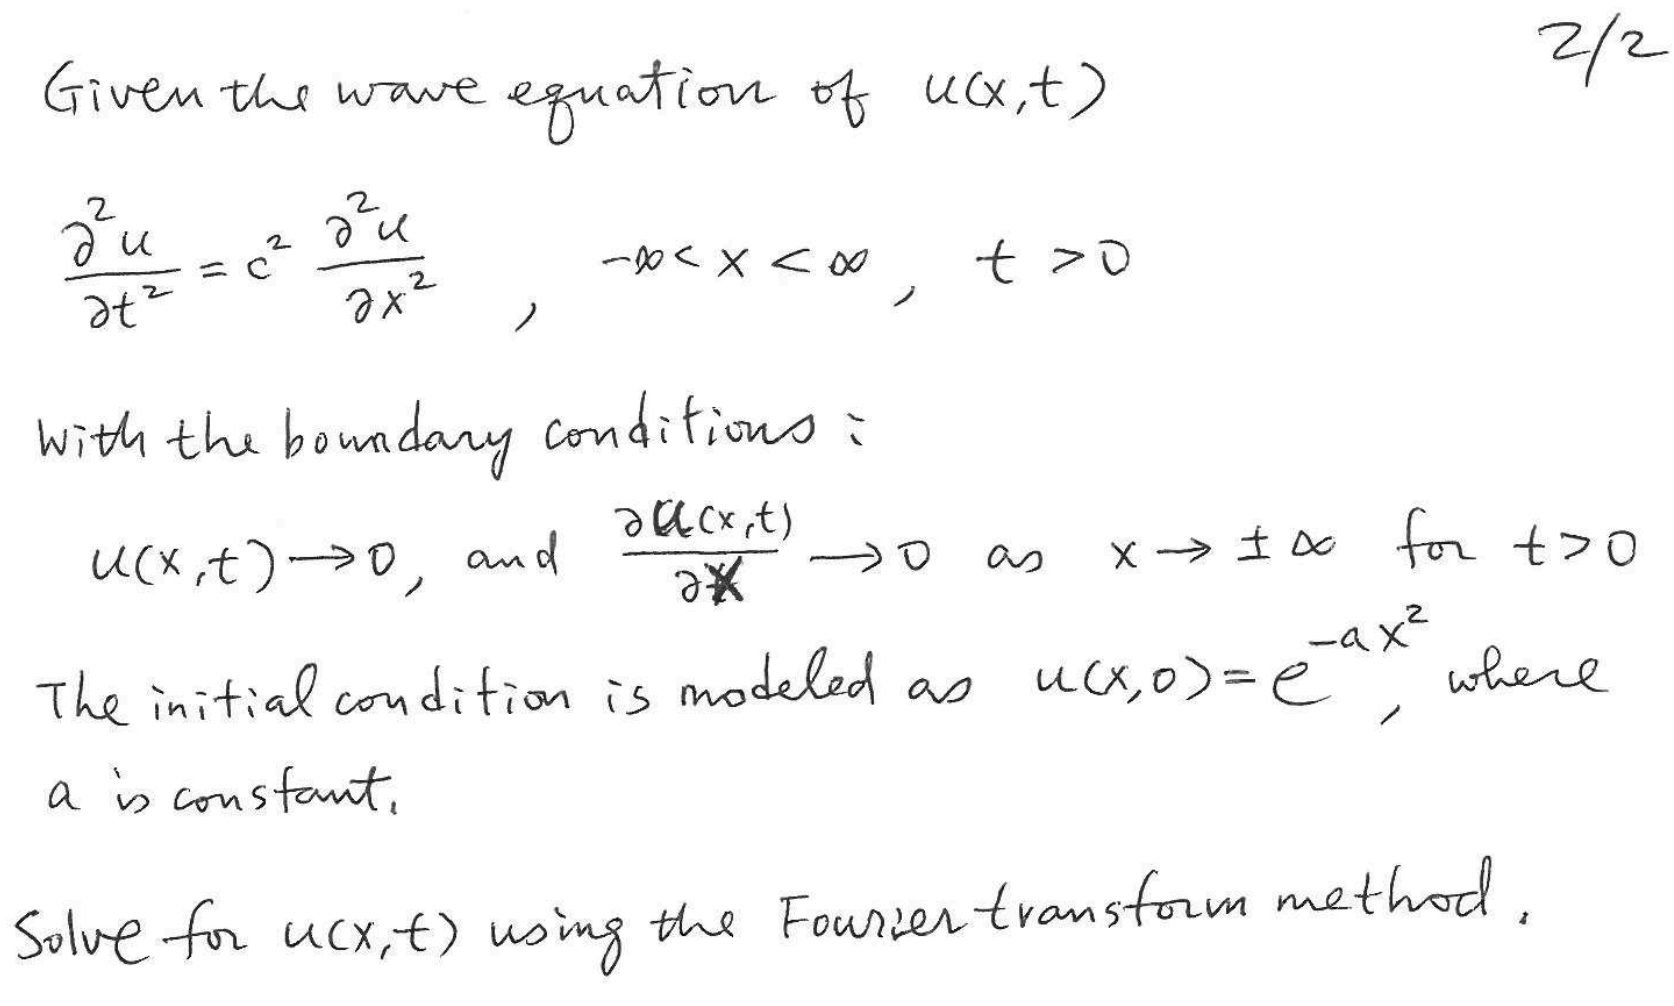 2/2
Given the wave equation of u(x,t)
∂²u/∂t² = c² ∂²u/∂x² , -∞ < x < ∞ , t > 0
with the boundary conditions :
u(x,t) → 0, and ∂u(x,t)/∂x → 0 as x → ± ∞ for t > 0
The initial condition is modeled as u(x,0) = e^{-ax²}, where
a is constant.
Solve for u(x,t) using the Fourier transform method.